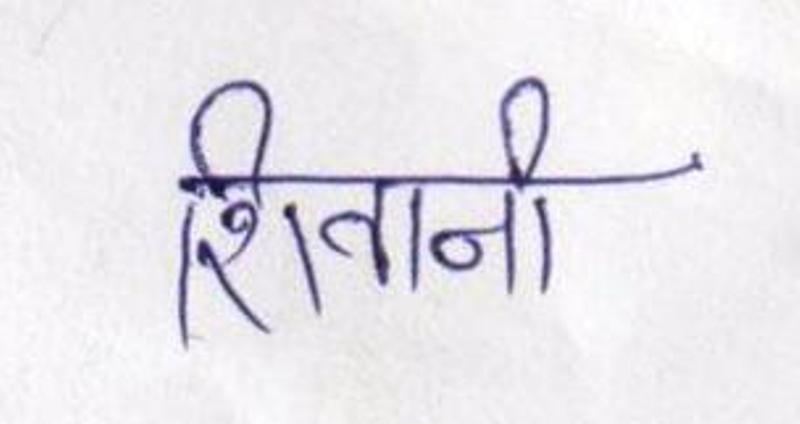 शितानी